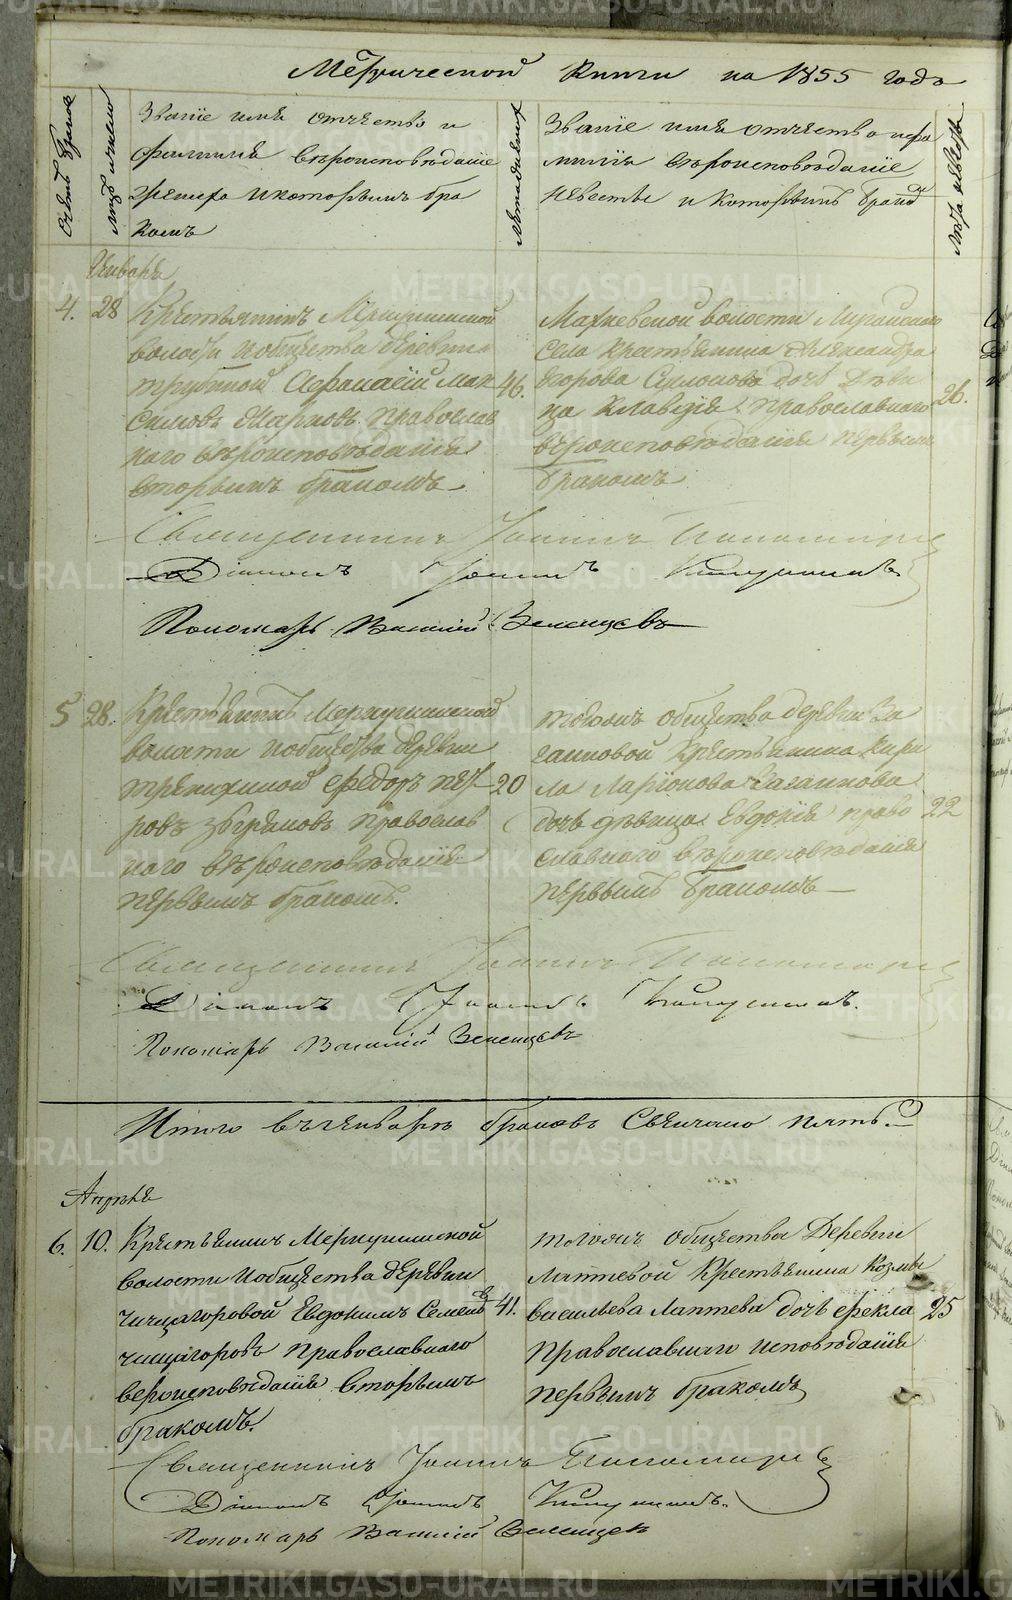 Метрической Книги на 1855 годъ
Счетъ браковъ
Мѣсяцъ и число
Званїе имя отчество и
фамилия вѣроисповѣданїе
Жениха и которымъ бра
комъ
Лѣта жениха
Званїе имя отчество и фа
милия вѣроисповѣданїе
Невесты и которымъ бракомъ
Лѣта невесты
Января
4. 28 Крестьянинъ Меркушинской
волости и общества деревни
трубиной Афанасїй Мак
симовъ православ
наго вѣроисповѣданїя
вторымъ бракомъ
46.
Махневской волости
села крестьянина Александра
Егорова дочь Дѣви
ца Клавдїя православнаго
вѣроисповѣданїя первымъ
бракомъ
26.
Священникъ Иоаннъ Пономаревъ
Дїаконъ Иоаннъ
Пономарь Василїй Зеленцовъ
5 28. Крестьянинъ Меркушинской
волости и общества деревни
Федоръ пет
ровъ православ
наго вѣроисповѣданїя
первымъ бракомъ.
20
тогожъ общества деревни За
гайновой крестьянина Кири
ла Ларїонова Загайнова
дочь дѣвица Евдокїя право
славнаго вѣроисповѣданїя
первымъ бракомъ
22
Священникъ Иоаннъ Пономаревъ
Дїаконъ Иоаннъ
Пономарь Василїй Зеленцовъ
Итого въ генваре браковъ Свенчано пять.
Апреля
6. 10. Крестьянинъ Меркушинской
волости и общества деревни
чащегоровой Евдокимъ Семенов
чащегоровъ православнаго
вероисповѣданїя вторымъ
бракомъ.
41.
тогожъ общества Деревни
Лаптевой крестьянина Козмы
васильева Лаптева дочь фекла
православнаго исповѣданїя
первымъ бракомъ
25
Священникъ Иоаннъ Пономаревъ
Дїаконъ Иоаннъ
Пономарь Василїй Зеленцовъ
METRIKI.GASO-URAL.RU